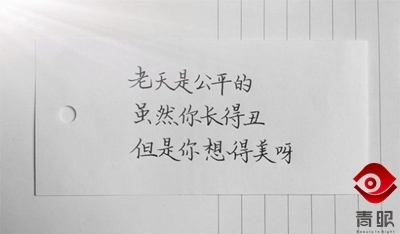 老天是公平的
虽然你长得丑
但是你想得美呀
青眼
BeautyInSight